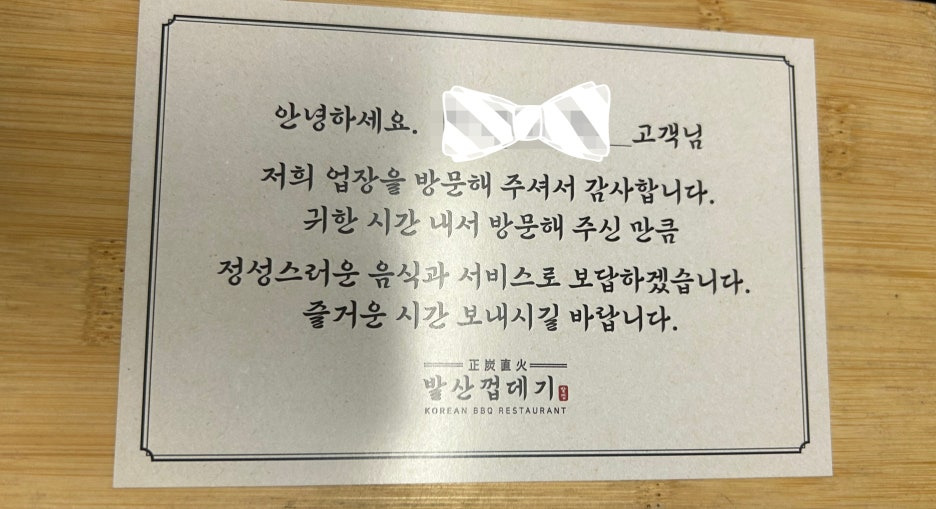 안녕하세요. 고객님
저희 업장을 방문해 주셔서 감사합니다.
귀한 시간 내서 방문해 주신 만큼
정성스러운 음식과 서비스로 보답하겠습니다.
즐거운 시간 보내시길 바랍니다.
正炭直火
발산껍데기
KOREAN BBQ RESTAURANT